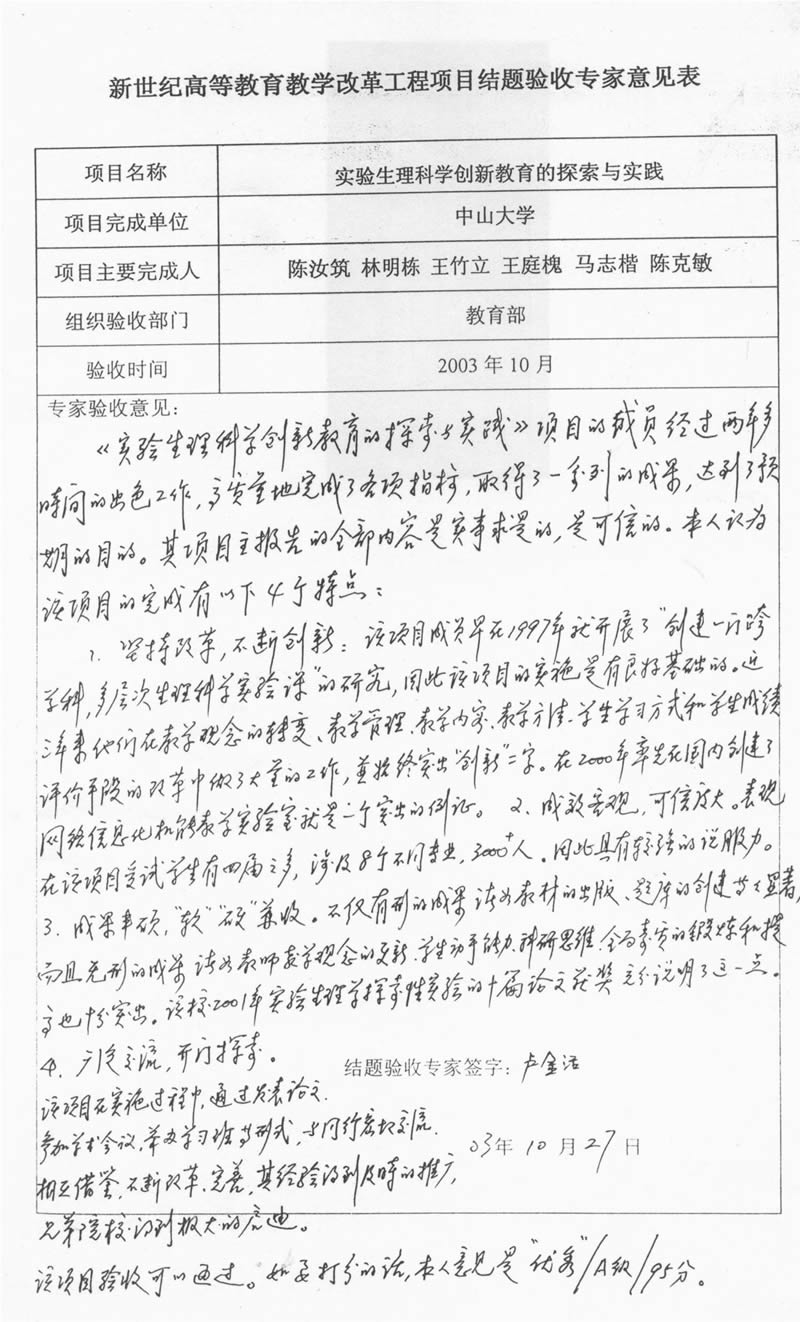 新世纪高等教育教学改革工程项目结题验收专家意见表
项目名称 实验生理科学创新教育的探索与实践
项目完成单位 中山大学
项目主要完成人 陈汝筑 林明栋 王竹立 王庭槐 马志楷 陈克敏
组织验收部门 教育部
验收时间 2003 年 10 月
专家验收意见：
《实验生理科学创新教育的探索与实践》项目的成员经过两年多
时间的出色工作，高质量地完成了各项指标，取得了一系列的成果，达到了预
期的目的。其项目主报告的全部内容是实事求是的，是可信的。本人认为
该项目的完成有以下4个特点：
1. 坚持改革，不断创新：该项目成员早在1997年就开展了“创建一门跨
学科，多层次生理科学实验课”的研究，因此该项目的实施是有良好基础的。近
三年来他们在教学观念的转变、教学管理、教学内容、教学方法、学生学习方式和学生成绩
评价手段的改革中做了大量的工作，并始终突出“创新”二字。在2000年率先在国内创建了
网络信息化机能教学实验室就是一个突出的例证。 2. 成效客观，可信度大。表现
在该项目受试学生有四届之多，涉及8个不同专业，3000+人。因此具有较强的说服力。
3. 成果丰硕，“软”“硬”兼收。不仅有形的成果诸如教材的出版、题库的创建等显著，
而且无形的成果诸如教师教学观念的更新、学生动手能力、科研思维、全面素质的锻炼和提
高也十分突出。该校2001年实验生理学探索性实验的十篇论文获奖充分说明了这一点。
4. 广泛交流，开门探索。
结题验收专家签字：卢金活
该项目在实施过程中，通过发表论文、
参加学术会议、举办学习班等形式，与同行密切交流，
03年 10 月 27 日
相互借鉴，不断改革、完善，其经验得到及时的推广，
兄弟院校得到极大的启迪。
该项目验收可以通过。如要打分的话，本人意见是“优秀”/A级/95分。